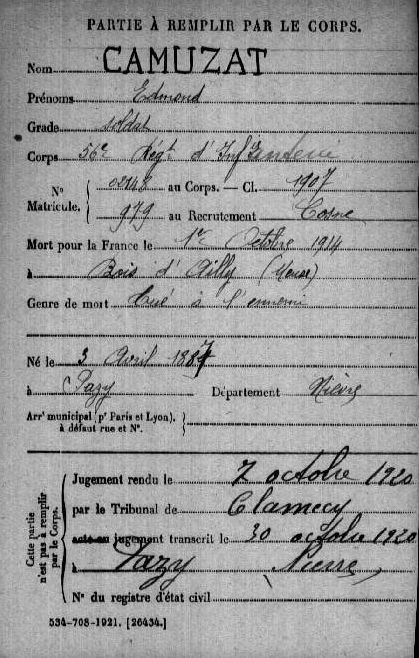 PARTIE À REMPLIR PAR LE CORPS.
Nom CAMUZAT
Prénoms Edmond
Grade soldat
Corps 56e Régt d'Infanterie
N° Matricule. { au Corps. — Cl. 1907
979 au Recrutement Cosne
Mort pour la France le 1er Octobre 1914
à Bois d'Ailly (Meuse)
Genre de mort Tué à l'ennemi
Né le 3 Avril 1887
à Pazy Département Nièvre
Arrt municipal (pr Paris et Lyon),
à défaut rue et N°.
Cette partie n'est pas à remplir par le Corps.
Jugement rendu le 7 octobre 1920
par le Tribunal de Clamecy
acte ou jugement transcrit le 30 octobre 1920
à Pazy Nièvre
N° du registre d'état civil
534-708-1921. [26434.]